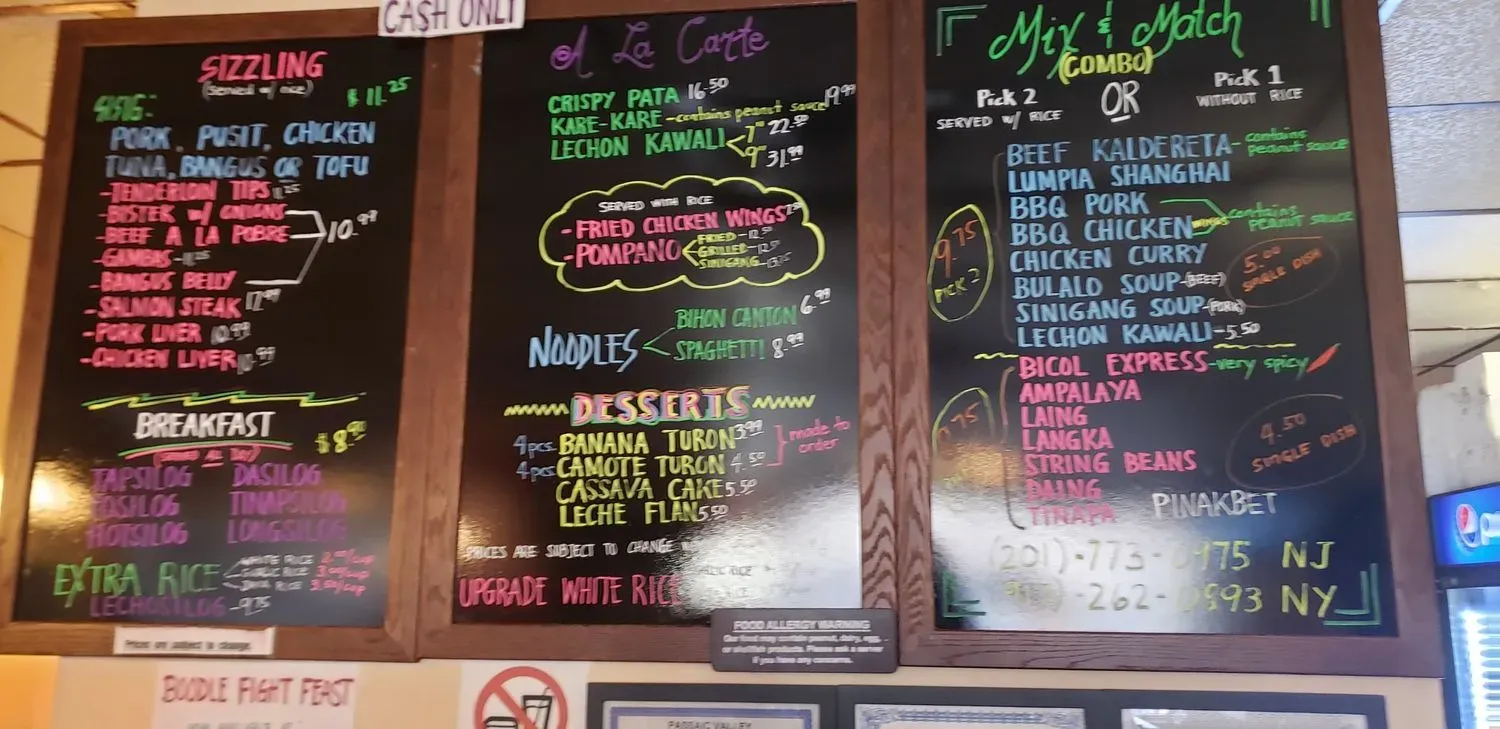 CASH ONLY
SIZZLING
(Served w/ rice)
SISIG- $11.25
PORK, PUSIT, CHICKEN
TUNA, BANGUS OR TOFU
-TENDERLOIN TIPS 11.25
-BISTEK w/ ONIONS
-BEEF A LA POBRE 10.99
-GAMBAS- 11.25
-BANGUS BELLY
-SALMON STEAK 12.99
-PORK LIVER 10.99
-CHICKEN LIVER 10.99
BREAKFAST $8.90
(SERVED ALL DAY)
TAPSILOG DASILOG
TOSILOG TINAPSILOG
HOTSILOG LONGSILOG
EXTRA RICE
WHITE RICE
LECHOSILOG -9.75
Prices are subject to change.
A La Carte
CRISPY PATA 16.50
KARE-KARE -contains peanut sauce 19.99
LECHON KAWALI 7" 22.50
9" 31.99
SERVED WITH RICE
-FRIED CHICKEN WINGS
-POMPANO FRIED-12.50
GRILLED-12.50
SINIGANG-13.25
NOODLES BIHON CANTON 6.99
SPAGHETTI 8.99
DESSERTS
4pcs. BANANA TURON 3.99
4pcs. CAMOTE TURON 4.50
made to order
CASSAVA CAKE 5.50
LECHE FLAN 5.50
PRICES ARE SUBJECT TO CHANGE
UPGRADE WHITE RICE
FOOD ALLERGY WARNING
Our food may contain peanut, dairy, egg,
or shellfish products. Please ask a server
if you have any concerns.
Mix & Match
(COMBO)
Pick 2 OR Pick 1
SERVED w/ RICE WITHOUT RICE
BEEF KALDERETA- contains peanut sauce
LUMPIA SHANGHAI
BBQ PORK
BBQ CHICKEN WINGS contains peanut sauce
CHICKEN CURRY
BULALO SOUP-(BEEF)
SINIGANG SOUP-(PORK)
LECHON KAWALI-5.50
9.75
PICK 2
5.00
SINGLE DISH
BICOL EXPRESS-very spicy
AMPALAYA
LAING
LANGKA
STRING BEANS
DAING
TINAPA PINAKBET
4.50
SINGLE DISH
(201)-773- 975 NJ
-262- 893 NY
BOODLE FIGHT FEAST
PASSAIC VALLEY